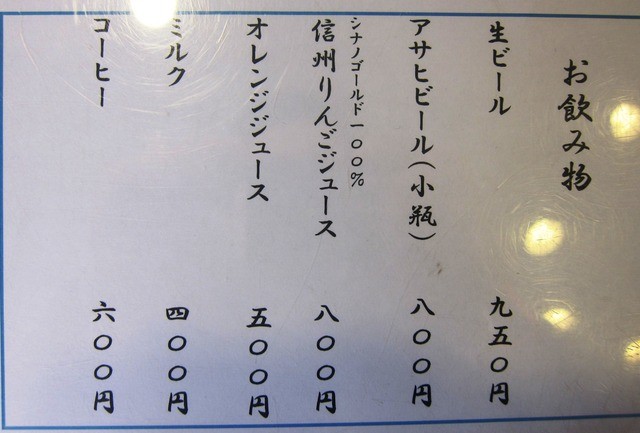 お飲み物
生ビール 九五〇円
アサヒビール（小瓶） 八〇〇円
シナノゴールド一〇〇％
信州りんごジュース 八〇〇円
オレンジジュース 五〇〇円
ミルク 四〇〇円
コーヒー 六〇〇円